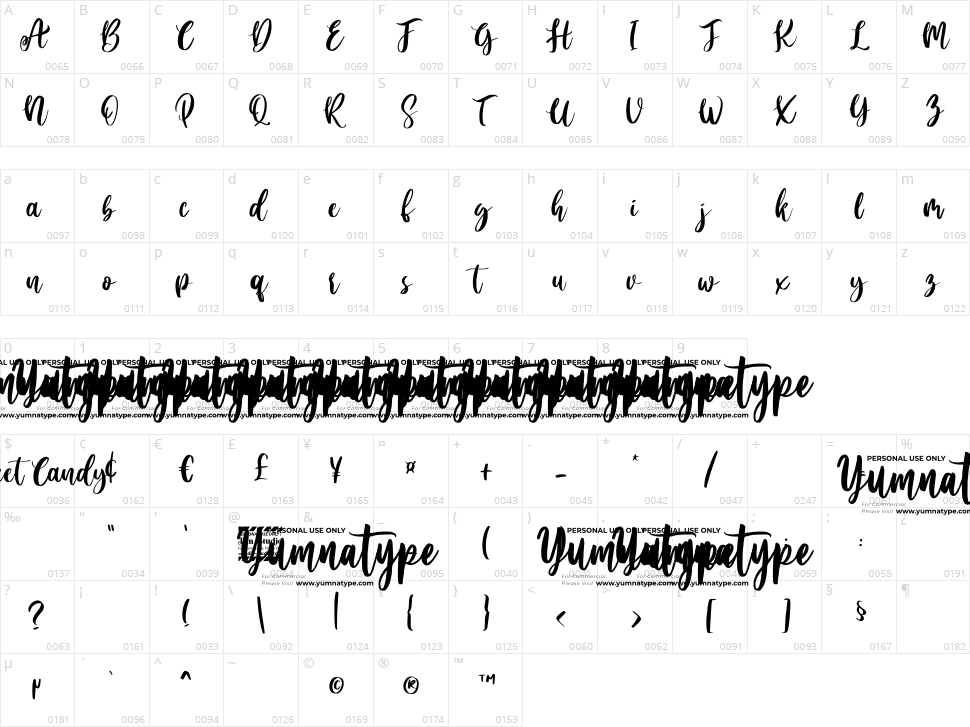 A B C D E F G H I J K L M
A B C D E F G H I J K L M
0065 0066 0067 0068 0069 0070 0071 0072 0073 0074 0075 0076 0077
N O P Q R S T U V W X Y Z
N O P Q R S T U V W X Y Z
0078 0079 0080 0081 0082 0083 0084 0085 0086 0087 0088 0089 0090
a b c d e f g h i j k l m
a b c d e f g h i j k l m
0097 0098 0099 0100 0101 0102 0103 0104 0105 0106 0107 0108 0109
n o p q r s t u v w x y z
n o p q r s t u v w x y z
0110 0111 0112 0113 0114 0115 0116 0117 0118 0119 0120 0121 0122
0 1 2 3 4 5 6 7 8 9
PERSONAL USE ONLY
Yumnatype
www.yumnatype.com
$ ¢ € £ ¥ ¤ + - * / ÷ = %
PERSONAL USE ONLY
Candy ¢ € £ ¥ ¤ + - * / Yumnat
For Commercial
0036 0162 0128 0163 0165 0164 0043 0045 0042 0047 0247
Please Visit www.yumnatype.com
‰ " ' @ & _ ( ) , . ; : ¿
PERSONAL USE ONLY PERSONAL USE ONLY
" ' Yumnatype ( Yumnatype :
For Commercial For Commercial
0137 0034 0039 0095 0040 0059 0058 0191
Please Visit www.yumnatype.com Please Visit www.yumnatype.com
? ¡ ! \ | { } < > [ ] § ¶
? ! \ | { } < > [ ] §
0063 0161 0033 0092 0124 0123 0125 0060 0062 0091 0093 0167 0182
µ ` ^ ~ © ® ™
µ ` ^ © ® ™
0181 0096 0094 0126 0169 0174 0153